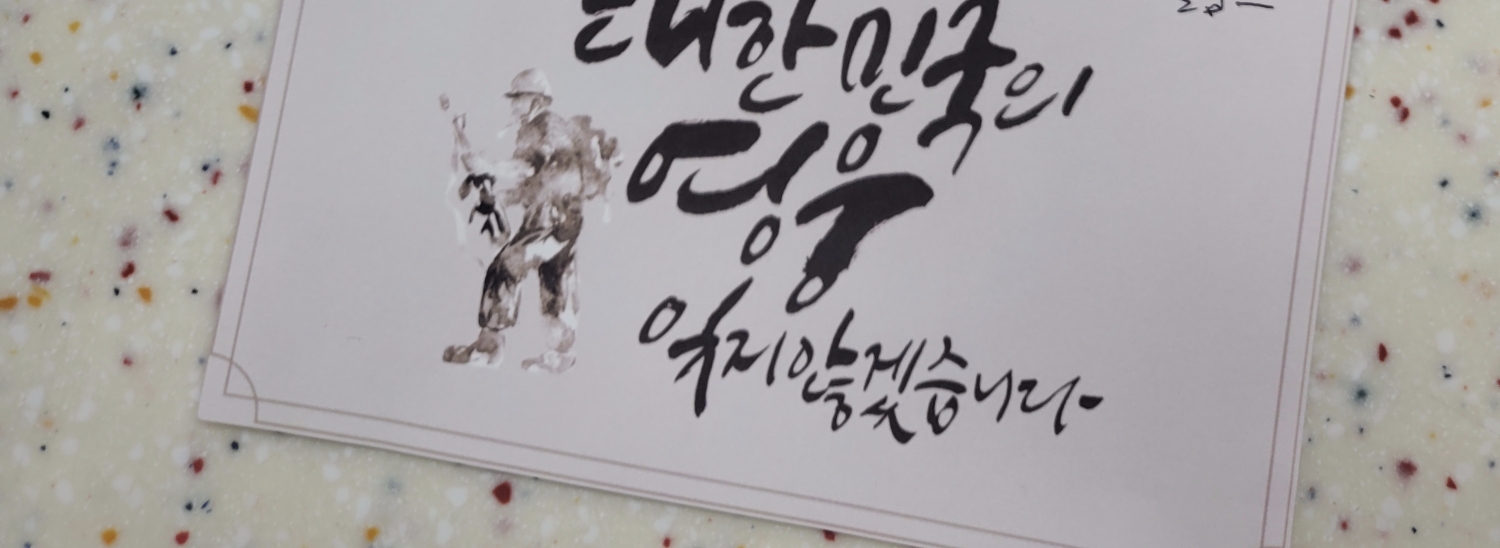 대한민국의
영웅
잊지 않겠습니다.